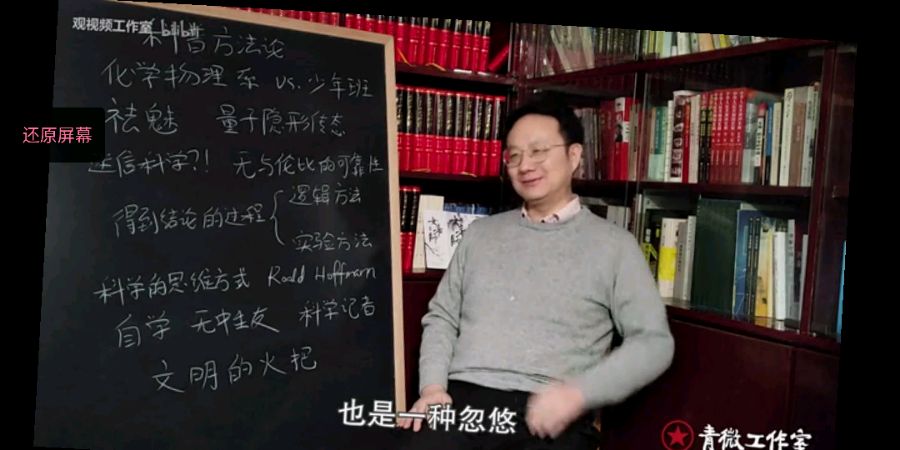 观视频工作室 bilibili
科普方法论
化学物理系 vs. 少年班
还原屏幕
祛魅 量子隐形传态
迷信科学?! 无与伦比的可靠性
得到结论的过程 { 逻辑方法
实验方法
科学的思维方式 Roald Hoffmann
自学 无中生友 科学记者
文明的火把
也是一种忽悠
青微工作室